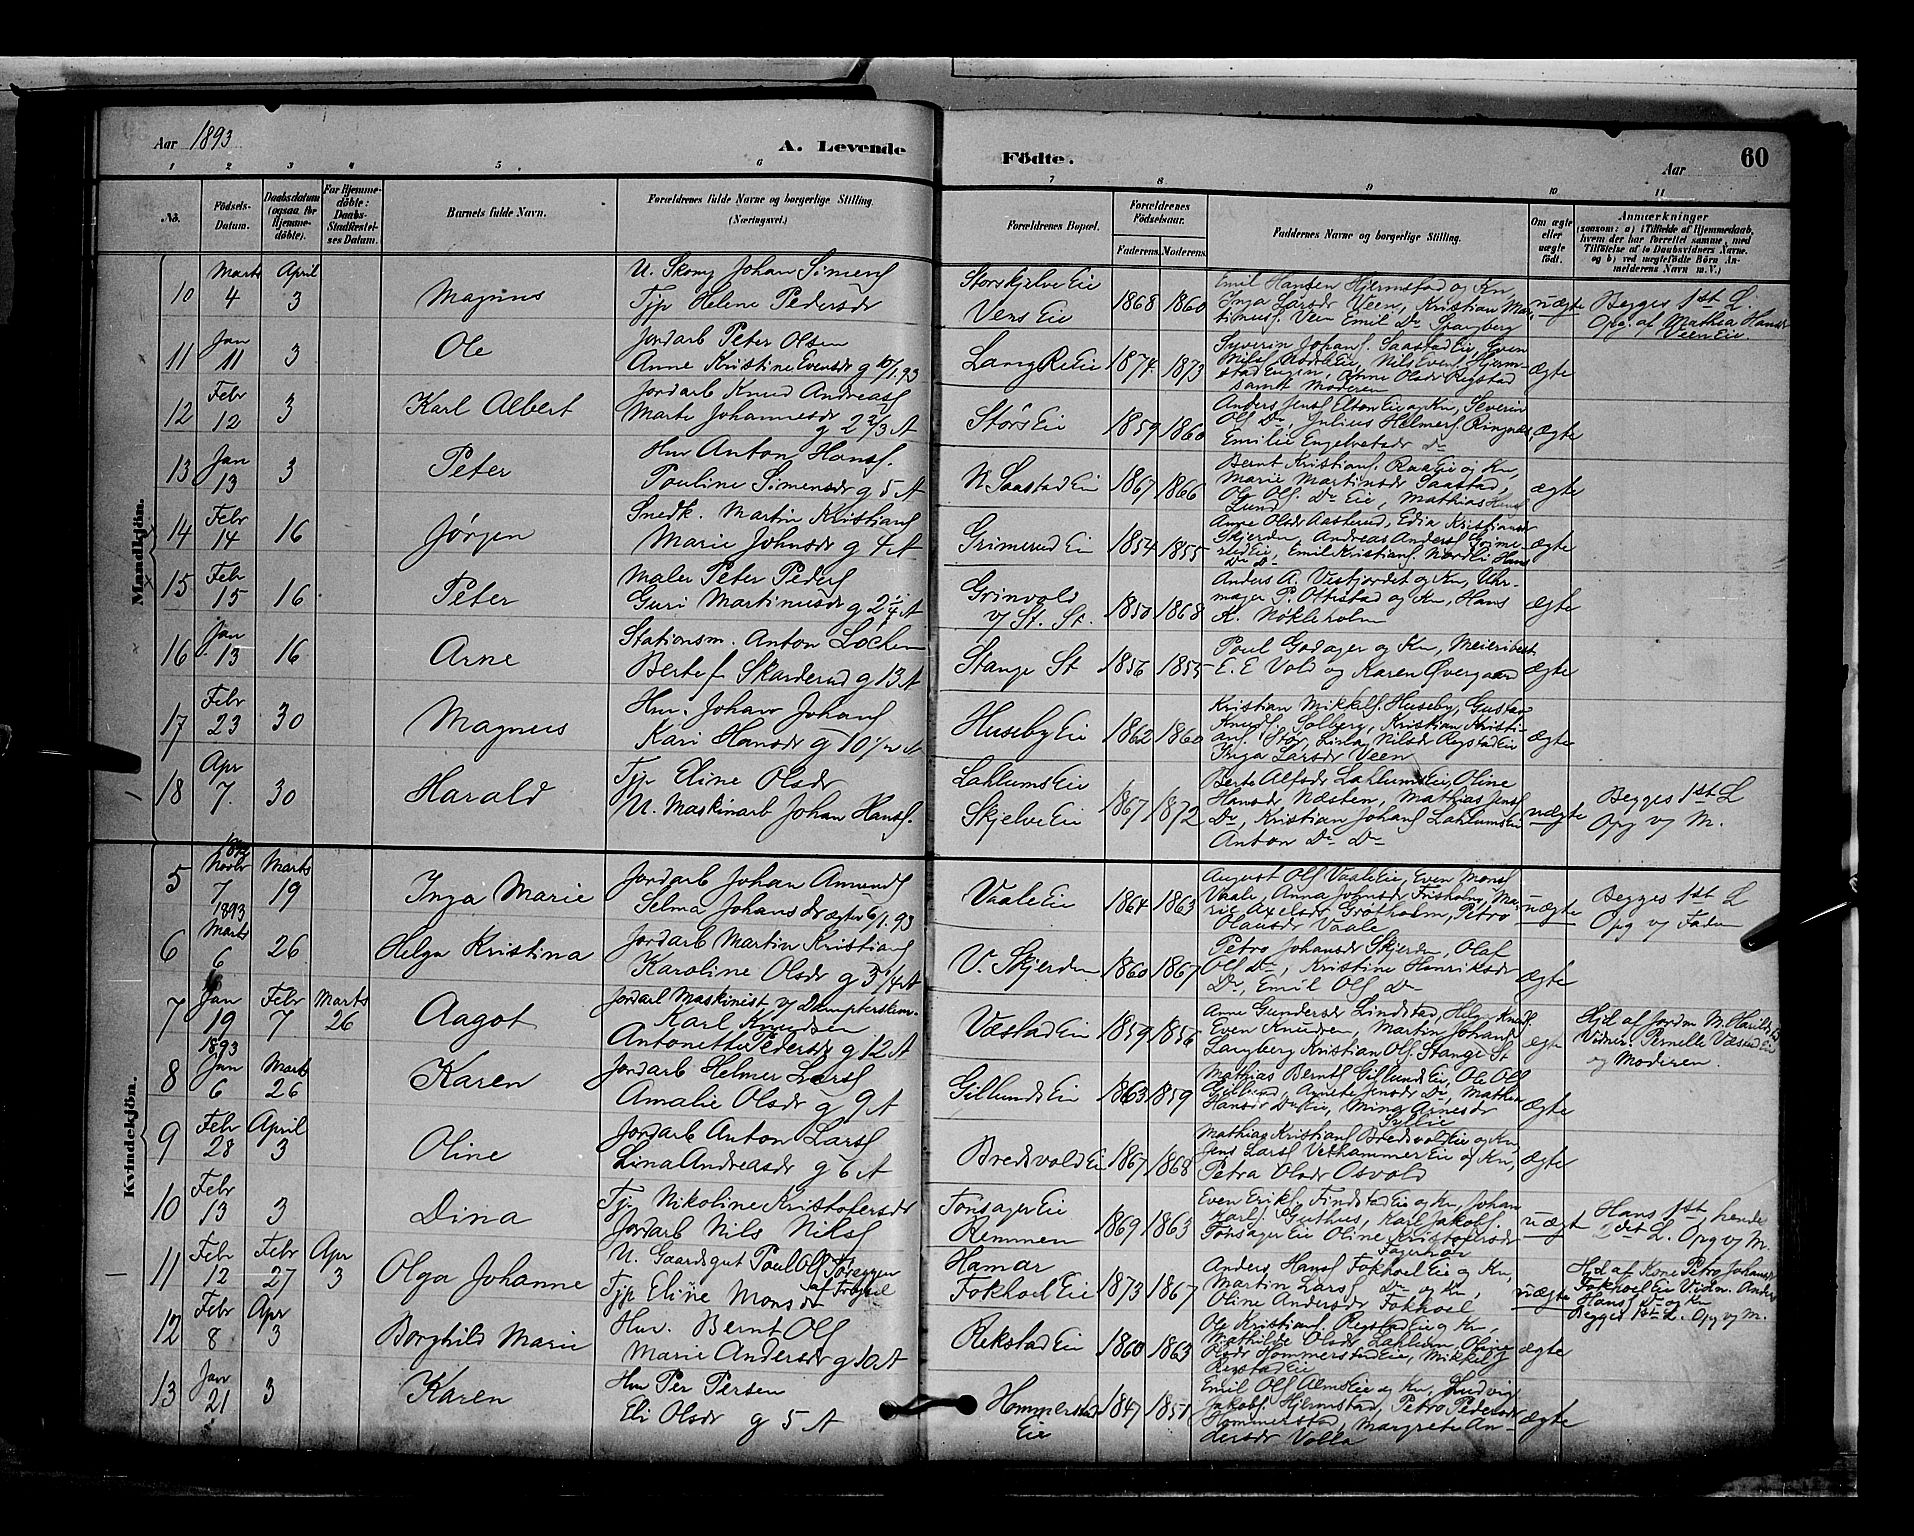 Aar 1893
A. Levende
Födte.
Aar
60
1 2 3 4 5. 6 7 8 9 10 11
No.
Födsels-Datum.
Daabsdatum (ogsaa for Hjemme-döbte).
For Hjemme-döbte: Daabs-Stadfæstel-ses Datum.
Barnets fulde Navn.
Forældrenes fulde Navne og borgerlige Stilling. (Næringsvei.)
Forældrenes Bopæl.
Forældrenes Födselsaar.
Faderens. Moderens.
Faddernes Navne og borgerlige Stilling.
Om ægte eller uægte födt.
Anmærkninger
(saasom: a) i Tilfælde af Hjemmedaab, hvem der har forrettet samme, med Tilföielse af to Daabsvidners Navne. og b) ved uægtefödte Börn An-melderens Navn m. V.)
Mandkjön.
10 Marts 4 April 3 Magnus
U. Skomg Johan Simens
Tjp Helene Pedersdr
Storskjelve Eie
Vens Eie
1868 1860
Emil Hansen Hjermstad og Kn,
Inga Larsdr Veen, Kristian Mar-
tinus. Veen Emil Do Spangberg
uægte
Begges 1st L.
Opg. af Mathea Hansdr
Veen Eie.
11 Jan 11 3 Ole
Jordarb Peter Olsen
Anne Kristine Evensdr g 10/1.93
Lang Re Eie
1874 1873
Syverin Johans. Saastad Eie, Even
Nils. Eie, Nils Evens. Hjerm-
stad Engen, Anne Olsdr Rigstad
samt Moderen
ægte
12 Febr 12 3 Karl Albert
Jordarb Knud Andreass
Marte Johannesdr
g 2 2/3 A
Störs Eie
1859 1860
Anders Jens Elton Eie og Kn, Severin
Ols Do, Julius Helmers. Ringnes,
Emilie Engelvstadr Do
ægte
13 Jan 13 3 Peter
Hm Anton Hans.
Pouline Simensdr g 5 A
N. Saastad Ei
1867 1866
Bernt Kristians. Raa Eie og Kn,
Marie Martinsdr Saastad,
Ole Ols Do Eie, Mathias Hans
Lund
ægte
14 Febr 14 16 Jørgen
Snedk. Martin Kristians
Marie Johnsdr g 4 A
Grimerud Ei
1854 1855
Anne Olsdr Aasterud, Edia Kristiansdr
Skjerden, Andreas Anders Grime-
rud Eie, Emil Kristians. Nordli Hans
Do Do
ægte
15 Febr 15 16 Peter
Maler Peter Peders
Guri Martinusdr g 2 1/4 A
Grinvold
v/ St. St.
1850 1868
Anders A. Vestfjordet og Kn, Uhr-
mager P. Ottestad og Kn, Hans
K. Nökleholm
ægte
16 Jan 13 16 Arne
Stationsm. Anton Lochen
Berte f Skarderud g 13 A
Stange St
1856 1855
Poul Godager og Kn, Meieribest.
E. E Vold og Karen Øvergaard
ægte
17 Febr 23 30 Magnus
Hm. Johan Johans
Kari Hansdr g 10 1/2 A
Huseby Eie
1862 1860
Kristian Mikkels. Huseby, Gustav
Knuds. Solberg, Kristian Kristi-
ans. Stor, Lina Nilsdr Rigstad Eie
Inga Larsdr Veen
ægte
18 Apr 7. 30 Harald
Tjp Eline Olsdr
U. Maskinarb Johan Hans.
Lahlums Eie
Skjelve Eie
1867 1872
Berte Alfsdr Lahlums Eie, Oline
Hansdr, Næsten, Mathias Jens
Do, Kristian Johans Lahlums Eie
Anton Do Do
uægte
Begges 1st L
Opg v/ M.
Kvindekjön.
5 1892 Novbr 7 Marts 19 Inga Marie
Jordarb Johan Amunds
Selma Johansdr ægtev. 6/1.93
Vaale Eie
1864 1863
August Ols Vaale Eie, Even Mons
Vaale, Anna Johnsdr Frisholm, Ma-
rie Axelsdr Grötholm, Petro
Olausdr Vaale
uægte
Begges 1st L
Opg v/ Faderen
6 1893 Marts 6 26 Helga Kristina
Jordarb Martin Kristians
Karoline Olsdr g 3 1/4 A
V. Skjerden
1860 1867
Petra Johansdr Skjerden, Olaf
Ols Do, Kristine Henriksdr
Do, Emil Ols Do
ægte
7 Jan 19 Febr 7 Marts 26 Aagot
Jordarb Maskinist v/
Karl Knudsen
Antonette Pedersdr g 12 A
Væstad Eie
1859 1856
Anne Gundersdr Lindstad, Helga Knuds
Even Knudsen, Martin Johans
Langberg Kristian Ols. Stange St
ægte
Hjd af Jordm M. Haralds
Vidner: Pernelle Væstad Eie
og Moderen.
8 1893 Jan 6 Marts 26 Karen
Jordarb Helmer Lars
Amalie Olsdr g 9 A
Gillunds Ei
1863 1859
Mathias Bernts Gillund Eie, Ole Ols
Gillund, Agnete Jensdr Do, Mathea
Hansdr Do Eie, Mina Arnesdr
Syllie
ægte
9 Febr 28 April 3 Oline
Jordarb Anton Lars
Lina Andreasdr g 6 A
Bredvold Ei
1867 1868
Mathias Kristians Bredvold Eie og Kn,
Jens Lars Vethammer Eie og Kn,
Petra Olsdr Osvold
ægte
10 Febr 13 3 Dina
Tjp. Nikoline Kristofersdr
Jordarb Nils Nils
Tønsager Eie
Remmen
1869 1863
Even Eriks. Finstad Eie og Kn, Johan
Karls. Guthus, Karl Jakobs.
Tønsager Eie Oline Kristofersdr
Fagernæs
uægt
Hans 1st, hendes
2det L. Opg v/ M.
11 Febr 12 Febr 27 Apr 3 Olga Johanne
U. Gaardsgut Poul Ols
af Trysil
Tjp Eline Monsdr
Hamar
Fokhoel Eie
1873 1867
Anders Hans Fokhoel Eie og Kn,
Martin Lars Do og Kn,
Oline Andersdr Fokhoel
uægte
Hjd af Kone Petra Johansdr
Fokhoel Eie Vidn. Anders
Hans Do og Kn
Begges 1st L. Opg v/ M.
12 Febr 8 Apr 3 Borghild Marie
Hm. Bernt Ols
Marie Andersdr g 10 A
Rekstad Ei
1860 1863
Ole Kristians. Rigstad Eie og Kn,
Mathilde Olsdr Lahlum, Oline
Olsdr Hommerstad Eie, Mikkel
Rigstad Eie
ægte
13 Jan 21 3 Karen
Hm Per Persen
Eli Olsdr g 5 A
Hommerstad
Eie
1847 1851
Emil Ols Alms Eie og Kn, Ludvig
Jakobs Hjermstad, Petra Pedersdr
Hommerstad, Margrete An-
dersdr Volla
ægte